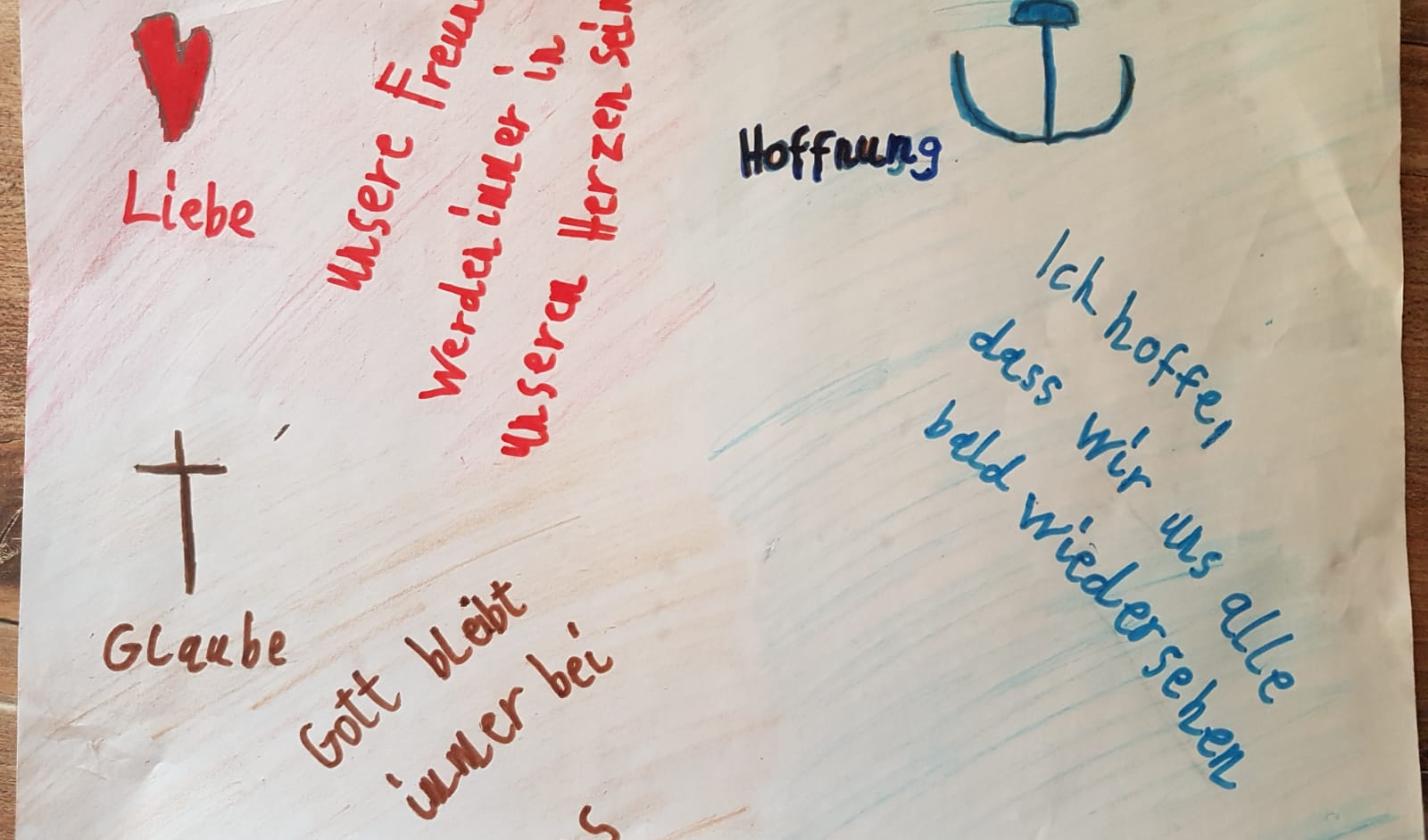 Liebe
unsere
werden immer in
unseren Herzen
Hoffnung
Ich hoffe,
dass wir uns alle
bald wiedersehen
Glaube
Gott bleibt
immer bei